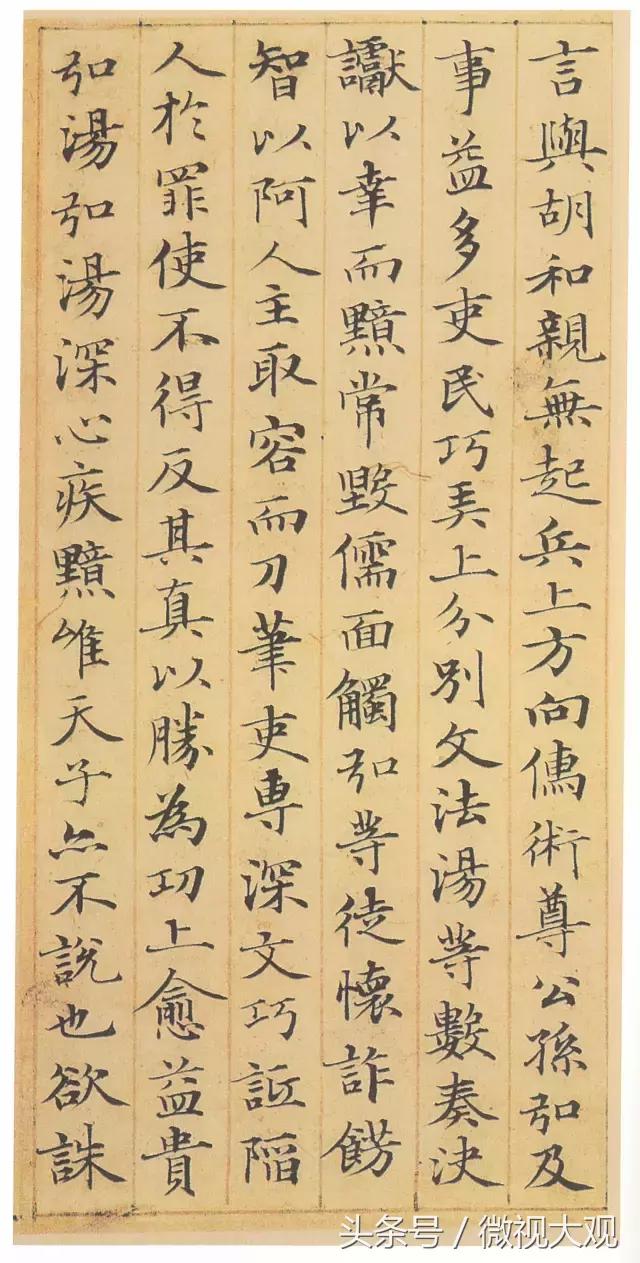 言與胡和親無起兵上方向儒術尊公孫弘及
事益多吏民巧弄上分別文法湯等數奏決
讞以幸而黯常毀儒面觸弘等徒懷詐飾
智以阿人主取容而刀筆吏專深文巧詆陷
人於罪使不得反其真以勝為功上愈益貴
弘湯弘湯深心疾黯唯天子亦不說也欲誅
头条号 / 微视大观